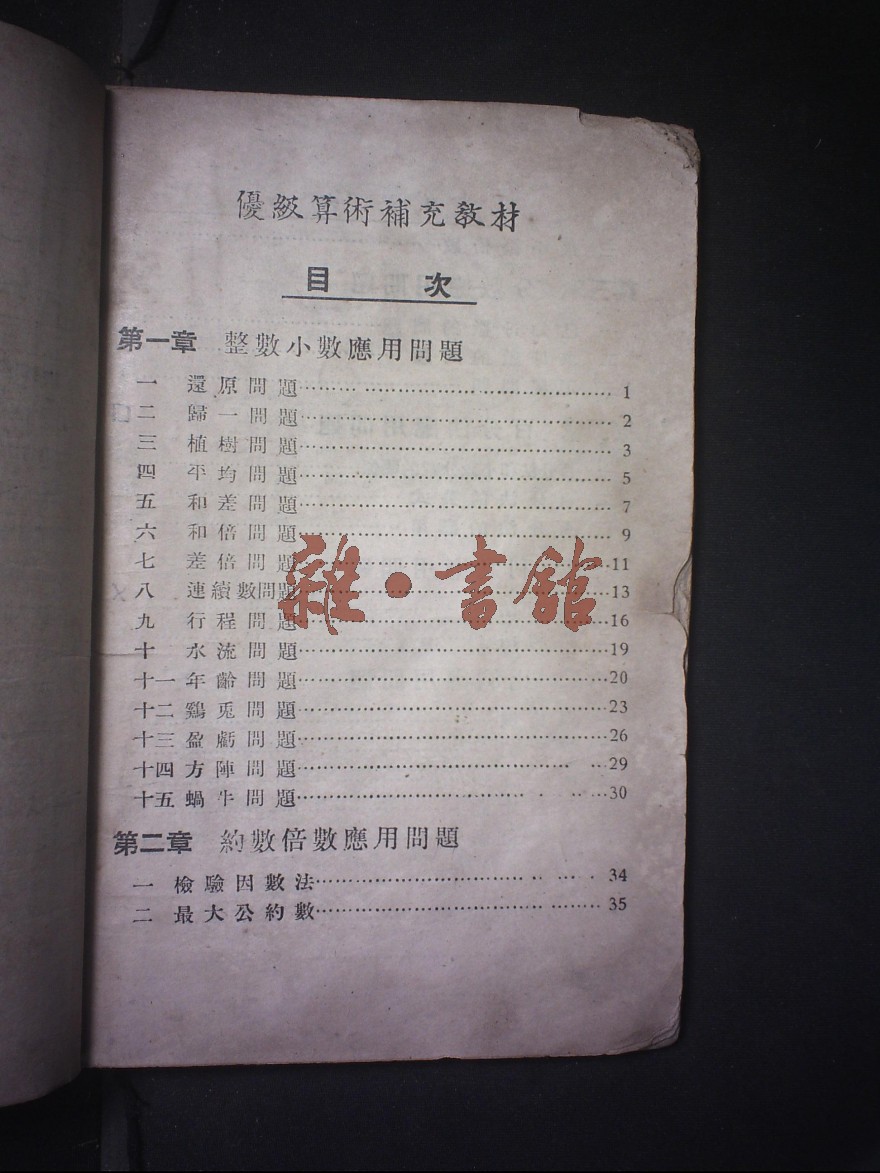 優級算術補充教材
目 次
第一章 整數小數應用問題
一 還原問題 1
二 歸一問題 2
三 植樹問題 3
四 平均問題 5
五 和差問題 7
六 和倍問題 9
七 差倍問題 11
八 連續數問題 13
九 行程問題 16
十 水流問題 19
十一 年齡問題 20
十二 鷄兎問題 23
十三 盈虧問題 26
十四 方陣問題 29
十五 蝸牛問題 30
第二章 約數倍數應用問題
一 檢驗因數法 34
二 最大公約數 35
雜·書舘